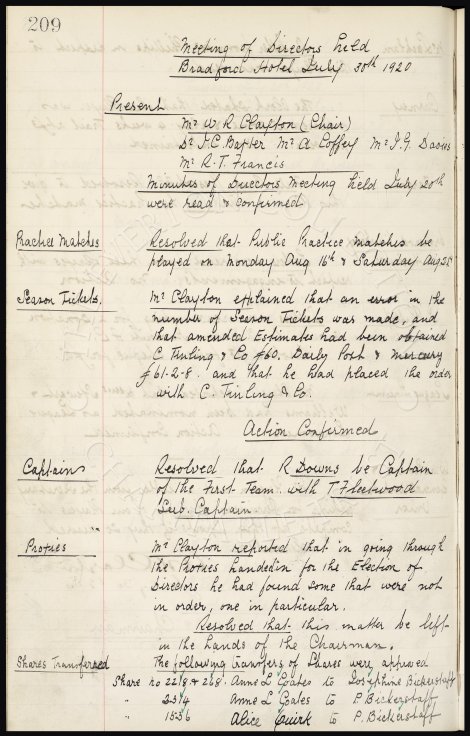 209
Meeting of Directors held
Bradford Hotel July 30th 1920
Present
Mr W. R. Clayton (Chair)
Dr J. C. Baxter Mr A Coffey Mr J. G. Davies
Mr R. T. Francis
Minutes of Directors Meeting held July 20th
were read & confirmed
Practice Matches Resolved that Public Practice matches be
played on Monday Aug 16th & Saturday Aug
Season Tickets. Mr Clayton explained that an error in the
number of Season Tickets was made, and
that amended Estimates had been obtained
C Tinling & Co £60. Daily Post & Mercury
£61-2-8. and that he had placed the order
with C. Tinling & Co.
Action Confirmed
Captain Resolved that R Downs be Captain
of the First Team with T Fleetwood
Sub. Captain
Proxies Mr Clayton reported that in going through
the Proxies handed in for the Election of
Directors he had found some that were not
in order, one in particular.
Resolved that this matter be left
in the hands of the Chairman.
Shares Transferred The following transfers of Shares were approved
Share no 2218 & 268. Anne L Coates to Josephine Bickerstaff
" 2314 Anne L Coates to P. Bickerstaff
" 1536 Alice Quirk to P. Bickerstaff